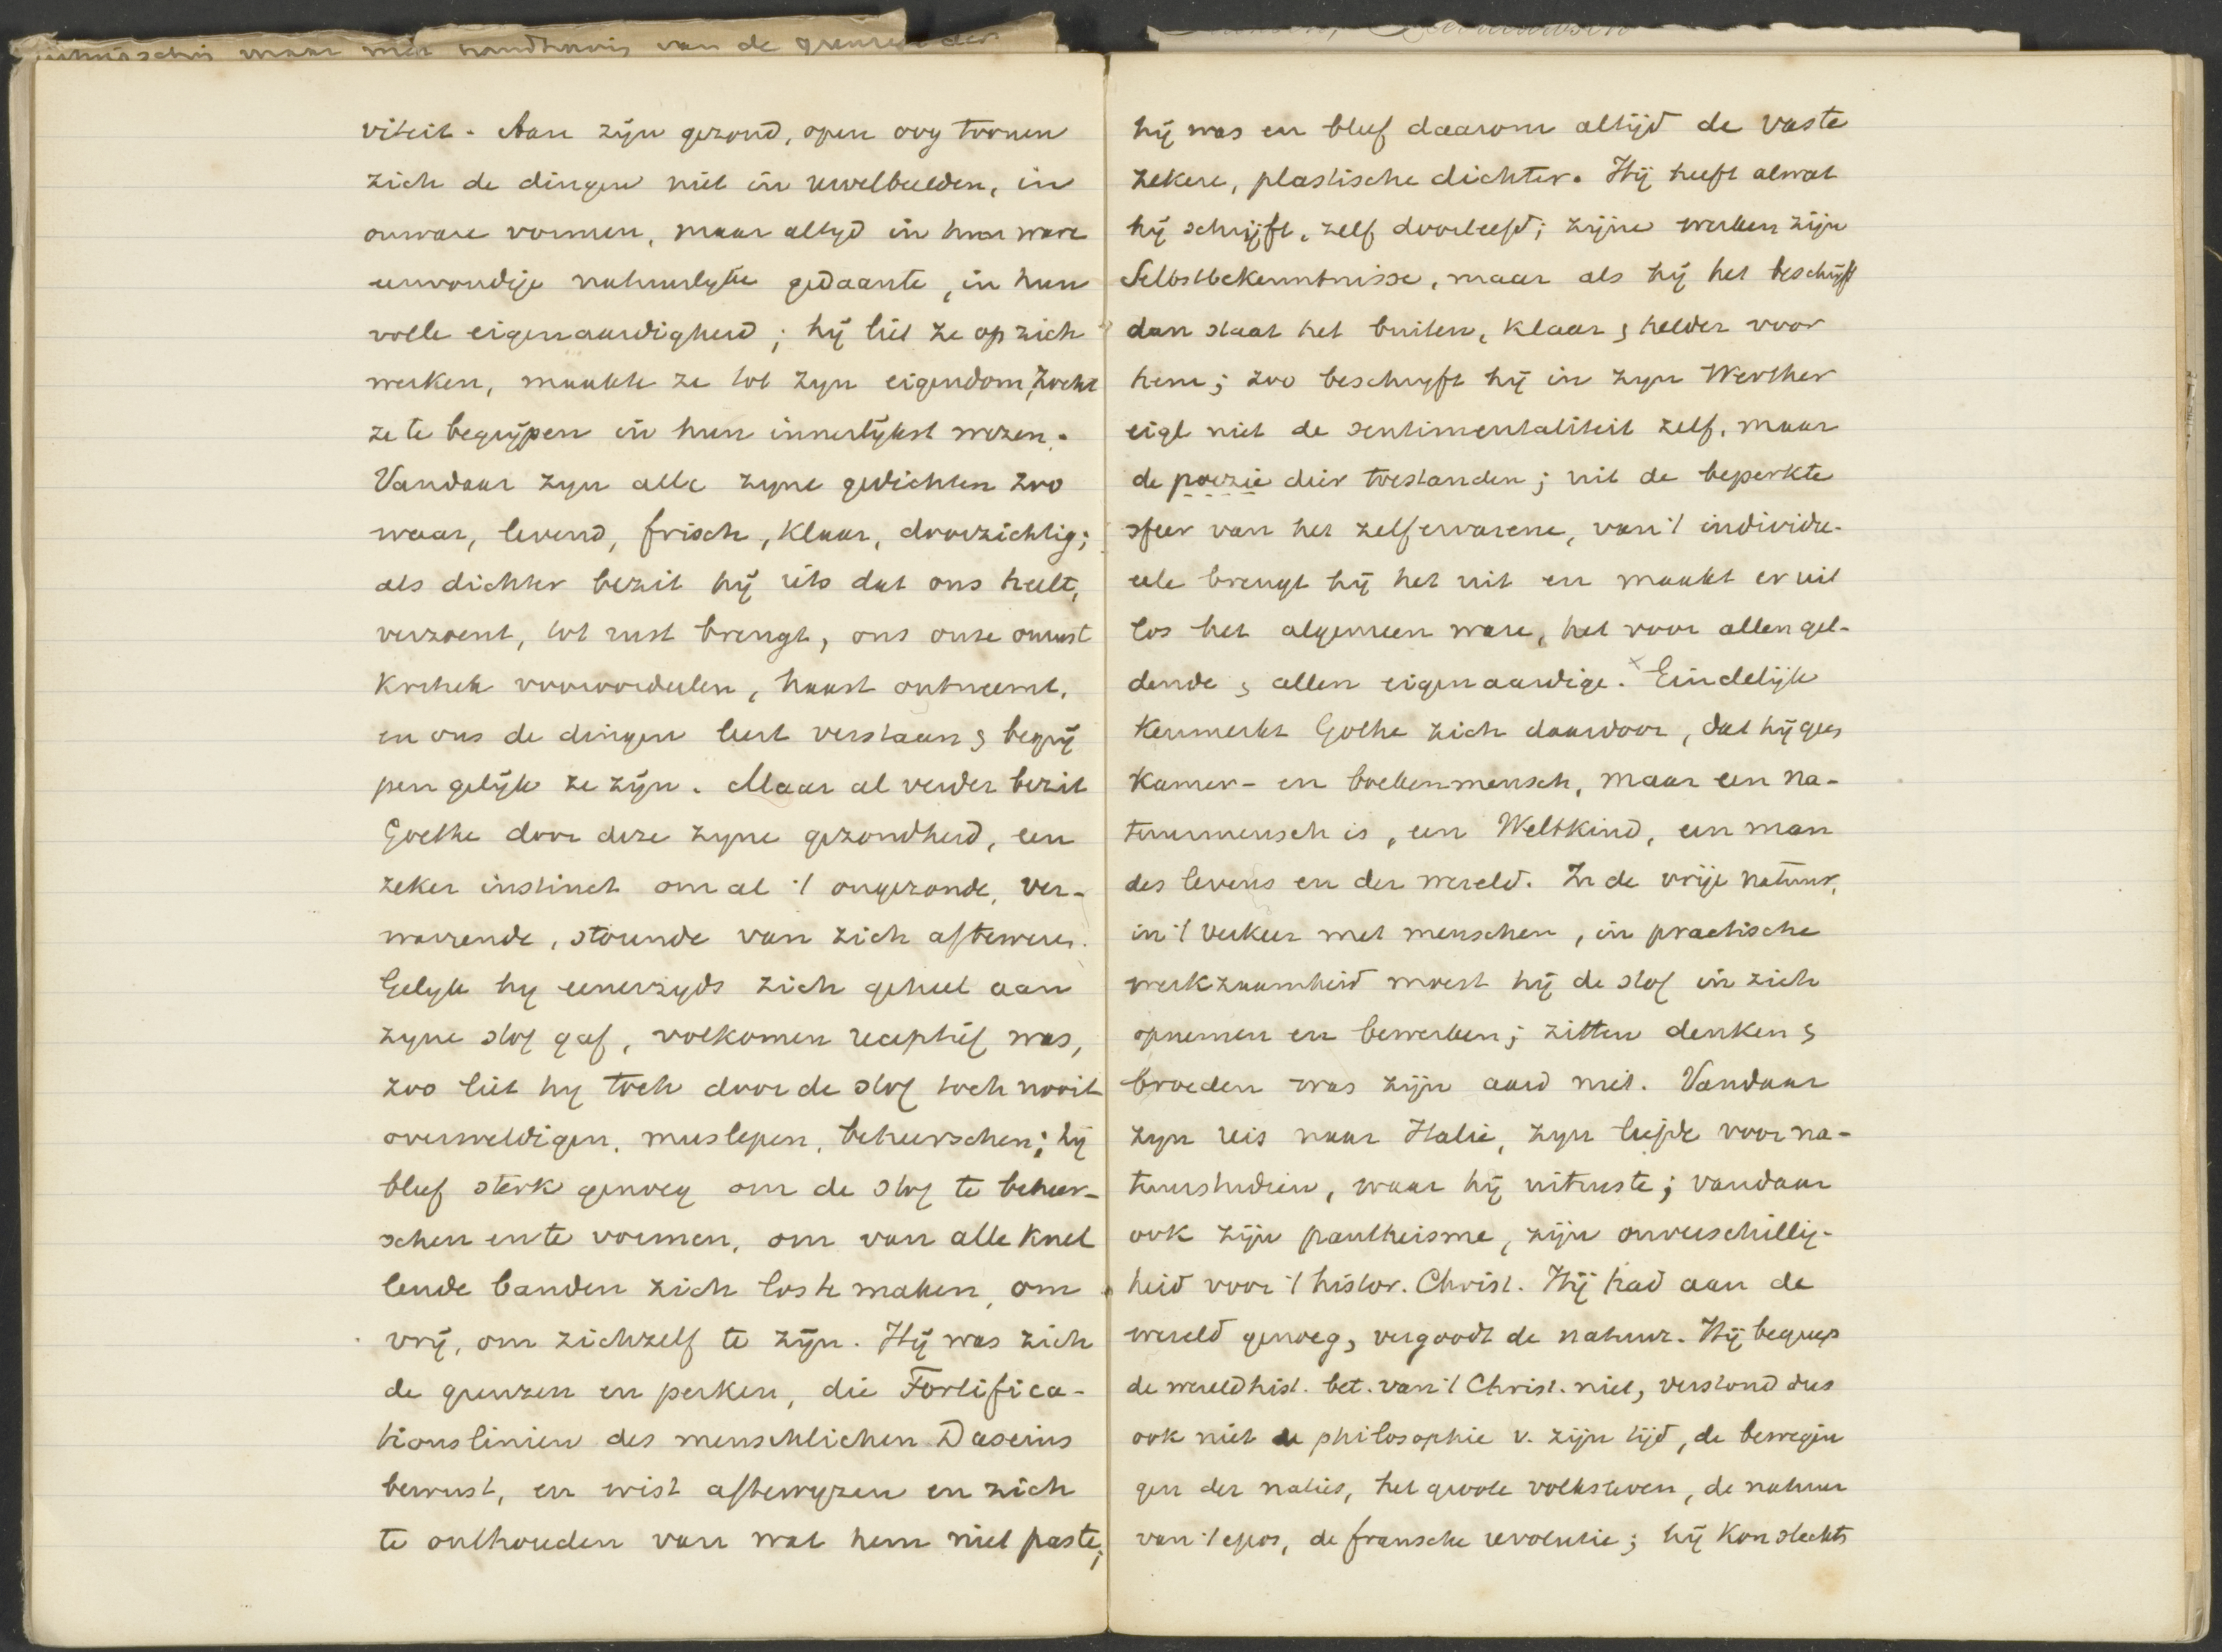 maar met handhaving van de grenzen der
viteit. Aan zijn gezond, open oog toonen
zich de dingen niet in nevelbeelden, in
onware vormen, maar altyd in hun ware
eenvoudige natuurlyke gedaante, in hun
volle eigenaardigheid; hij liet ze op zich
werken, maakte ze tot zyn eigendom, zocht
ze te begrijpen in hun innerlijkst wezen.
Vandaar zyn alle zyne gedichten zoo
waar, levend, frisch, klaar, doorzichtig;
als dichter bezit hij iets dat ons heelt,
verzoent, tot rust brengt, ons onze onrust
kritiek vooroordeelen, haast ontneemt,
en ons de dingen leert verstaan & begrij
pen gelijk ze zijn. Maar al verder bezit
Goethe door deze zyne gezondheid, een
zeker instinct om al 't ongezonde, ver-
warrende, storende van zich afteweren.
Gelyk hy eenerzyds zich geheel aan
zyne stof gaf, volkomen receptief was,
zoo liet hy toch door de stof toch nooit
overweldigen, meeslepen, beheerschen; hij
bleef sterk genoeg om de stof te beheer-
schen en te vormen, om van alle knel
lende banden zich los te maken, om
vrij, om zichzelf te zijn. Hij was zich
de grenzen en perken, die Fortifica-
tionslinien des menschlichen Daseins
bewust, en wist aftewyzen en zich
te onthouden van wat hem niet paste;
hij was en bleef daarom altijd de vaste
zekere, plastische dichter. Hij heeft alwat
hij schrijft, zelf doorleefd; zijne werken zijn
Selbstbekenntnisse, maar als hij het beschrijft
dan staat het buiten, klaar & helder voor
hem; zoo beschryft hij in zyn Werther
eigl niet de sentimentaliteit zelf, maar
de poezie dier toestanden; uit de beperkte
sfeer van het zelfervarene, van 't individu-
eele brengt hij het uit en maakt er uit
los het algemeen ware, het voor allen gel-
dende & allen eigenaardige. x Eindelijk
kenmerkt Gothe zich daardoor, dat hij geen
kamer- en boekenmensch, maar een na-
tuurmensch is, een Weltkind, een man
des levens en der wereld. In de vrije natuur,
in 't verkeer met menschen, in practische
werkzaamheid moest hij de stof in zich
opnemen en bewerken; zitten denken &
broeden was zijn aard niet. Vandaar
zyn reis naar Italie, zyn liefde voor na-
tuurstudien, waar hij uitrustte; vandaar
ook zijn pantheisme, zijn onverschillig-
heid voor 't histor. Christ. Hij had aan de
wereld genoeg, vergoodt de natuur. Hij begreep
de wereldhist. bet. van 't Christ. niet, verstond dus
ook niet de philosophie v. zijn tijd, de bewegin
gen der naties, het groote volksleven, de natuur
van 't epos, de fransche revolutie; hij kon slechts